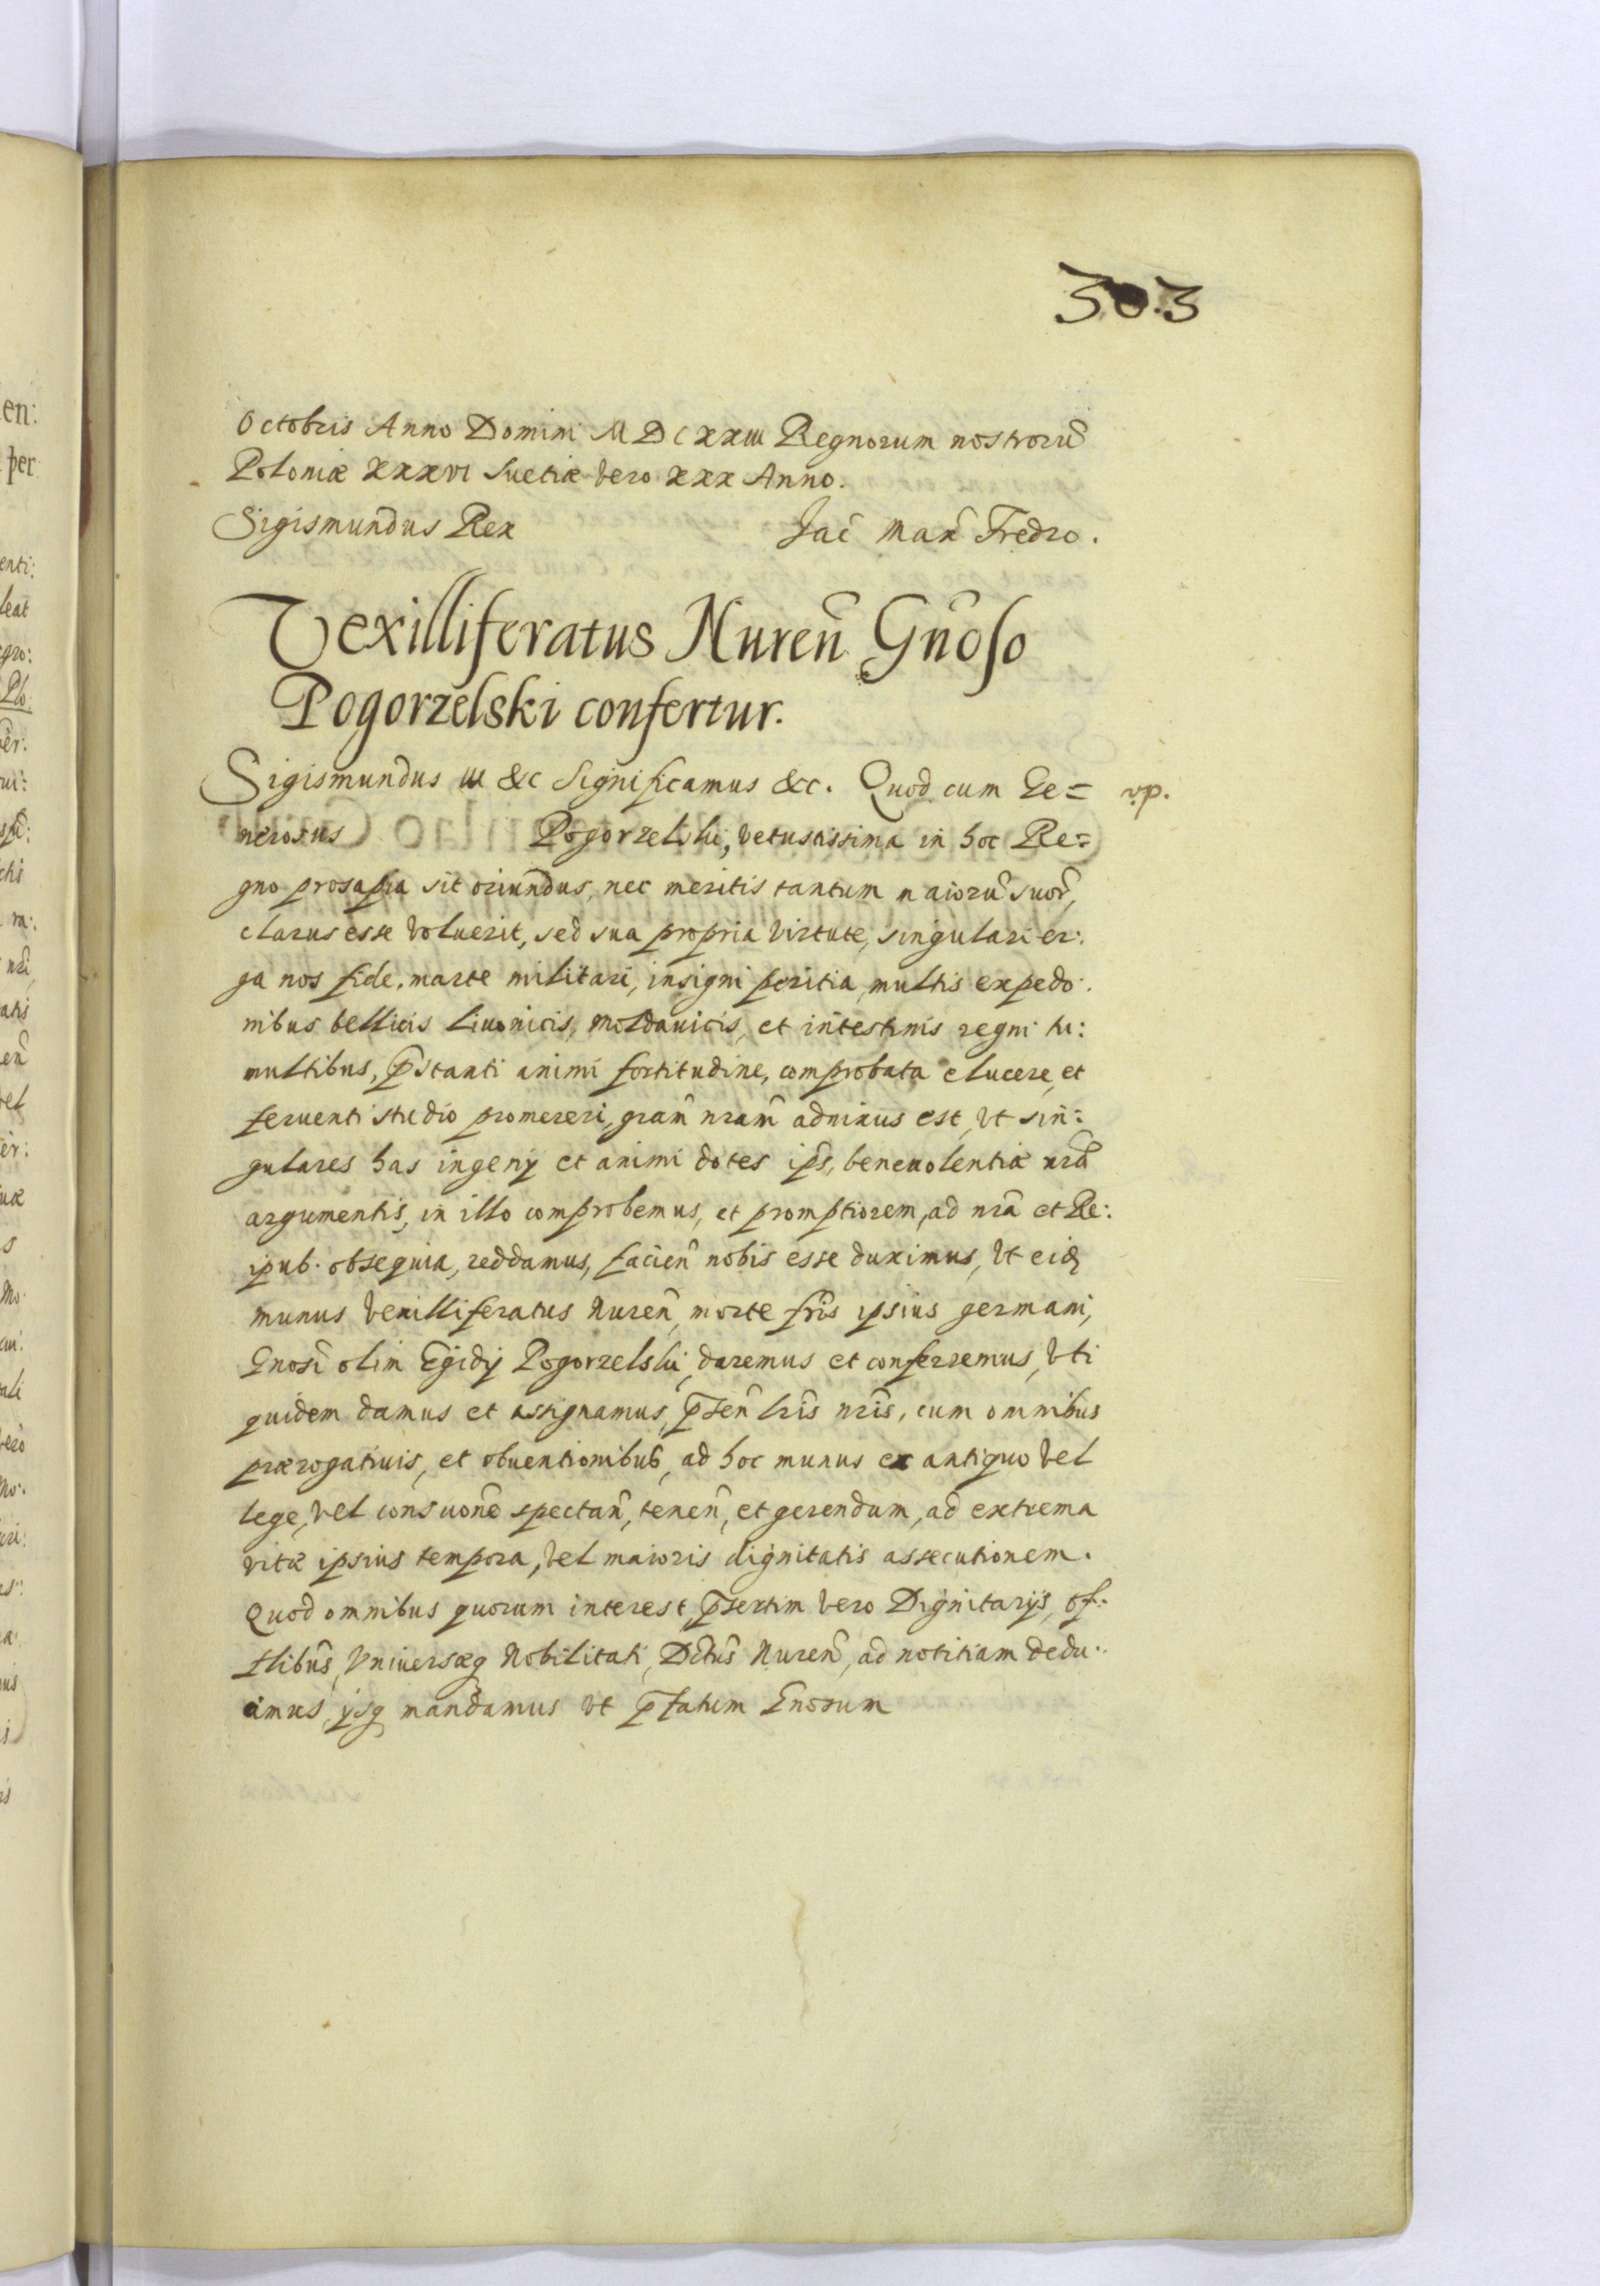 303
Octobris Anno Domini MDCXXIII Regnorum nostrorũ
Poloniæ XXXVI Suetiæ vero XXX Anno.
Sigismundus Rex Jac̃ Max̃ Fredro.
Vexilliferatus Nureñ Gñoso
Pogorzelski confertur.
Sigismundus III &c Significamus &c. Quod cum Ge= vp.
nerosus Pogorzelski, vetustissima in hoc Re=
gno prosapia sit oriundus, nec meritis tantum maiorũ suor̃,
clarus esse voluerit, sed sua propria virtute, singulari er:
ga nos fide, marte militari, insigni peritia, multis expedo:
nibus bellicis Liuonicis, Moldauicis, et intestinis regni tu:
multibus, p̃stanti animi fortitudine, comprobata elucere, et
feruenti studio promereri, grãm nrãm adnixus est, vt sin:
gulares has ingenij et animi dotes ip̃s, beneuolentiæ nrã
argumentis, in illo comprobemus, et promptiorem, ad nrã et Re:
ipub. obsequia, reddamus, facieñ nobis esse duximus, vt eid
munus vexilliferatus Nureñ, morte fris̃ ipsius germani,
Gnosi olim Egidij Pogorzelski, daremus et conferremus, vti
quidem damus et assignamus, p̃señ lris̃ nris̃, cum omnibus
prærogatiuis, et obuentionibus, ad hoc munus ex antiquo vel
lege, vel consuoñe spectañ, teneñ, et gerendum, ad extrema
vitæ ipsius tempora, vel maioris dignitatis assecutionem.
Quod omnibus quorum interest p̃sertim vero Dignitarijs, of:
flibus̃, Vniversæq Nobilitati, Dctus̃ Nureñ, ad notitiam dedu:
cimus, ijsq mandamus vt p̃fatum Gnosum